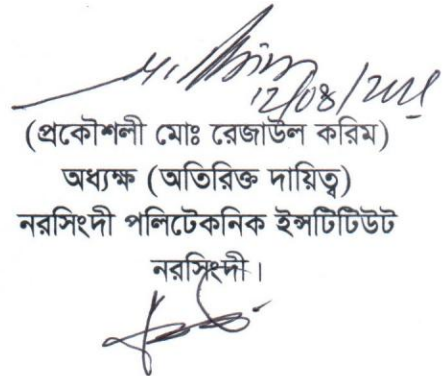 12/08/202
(প্রকৌশলী মোঃ রেজাউল করিম)
অধ্যক্ষ (অতিরিক্ত দায়িত্ব)
নরসিংদী পলিটেকনিক ইন্সটিটিউট
নরসিংদী।